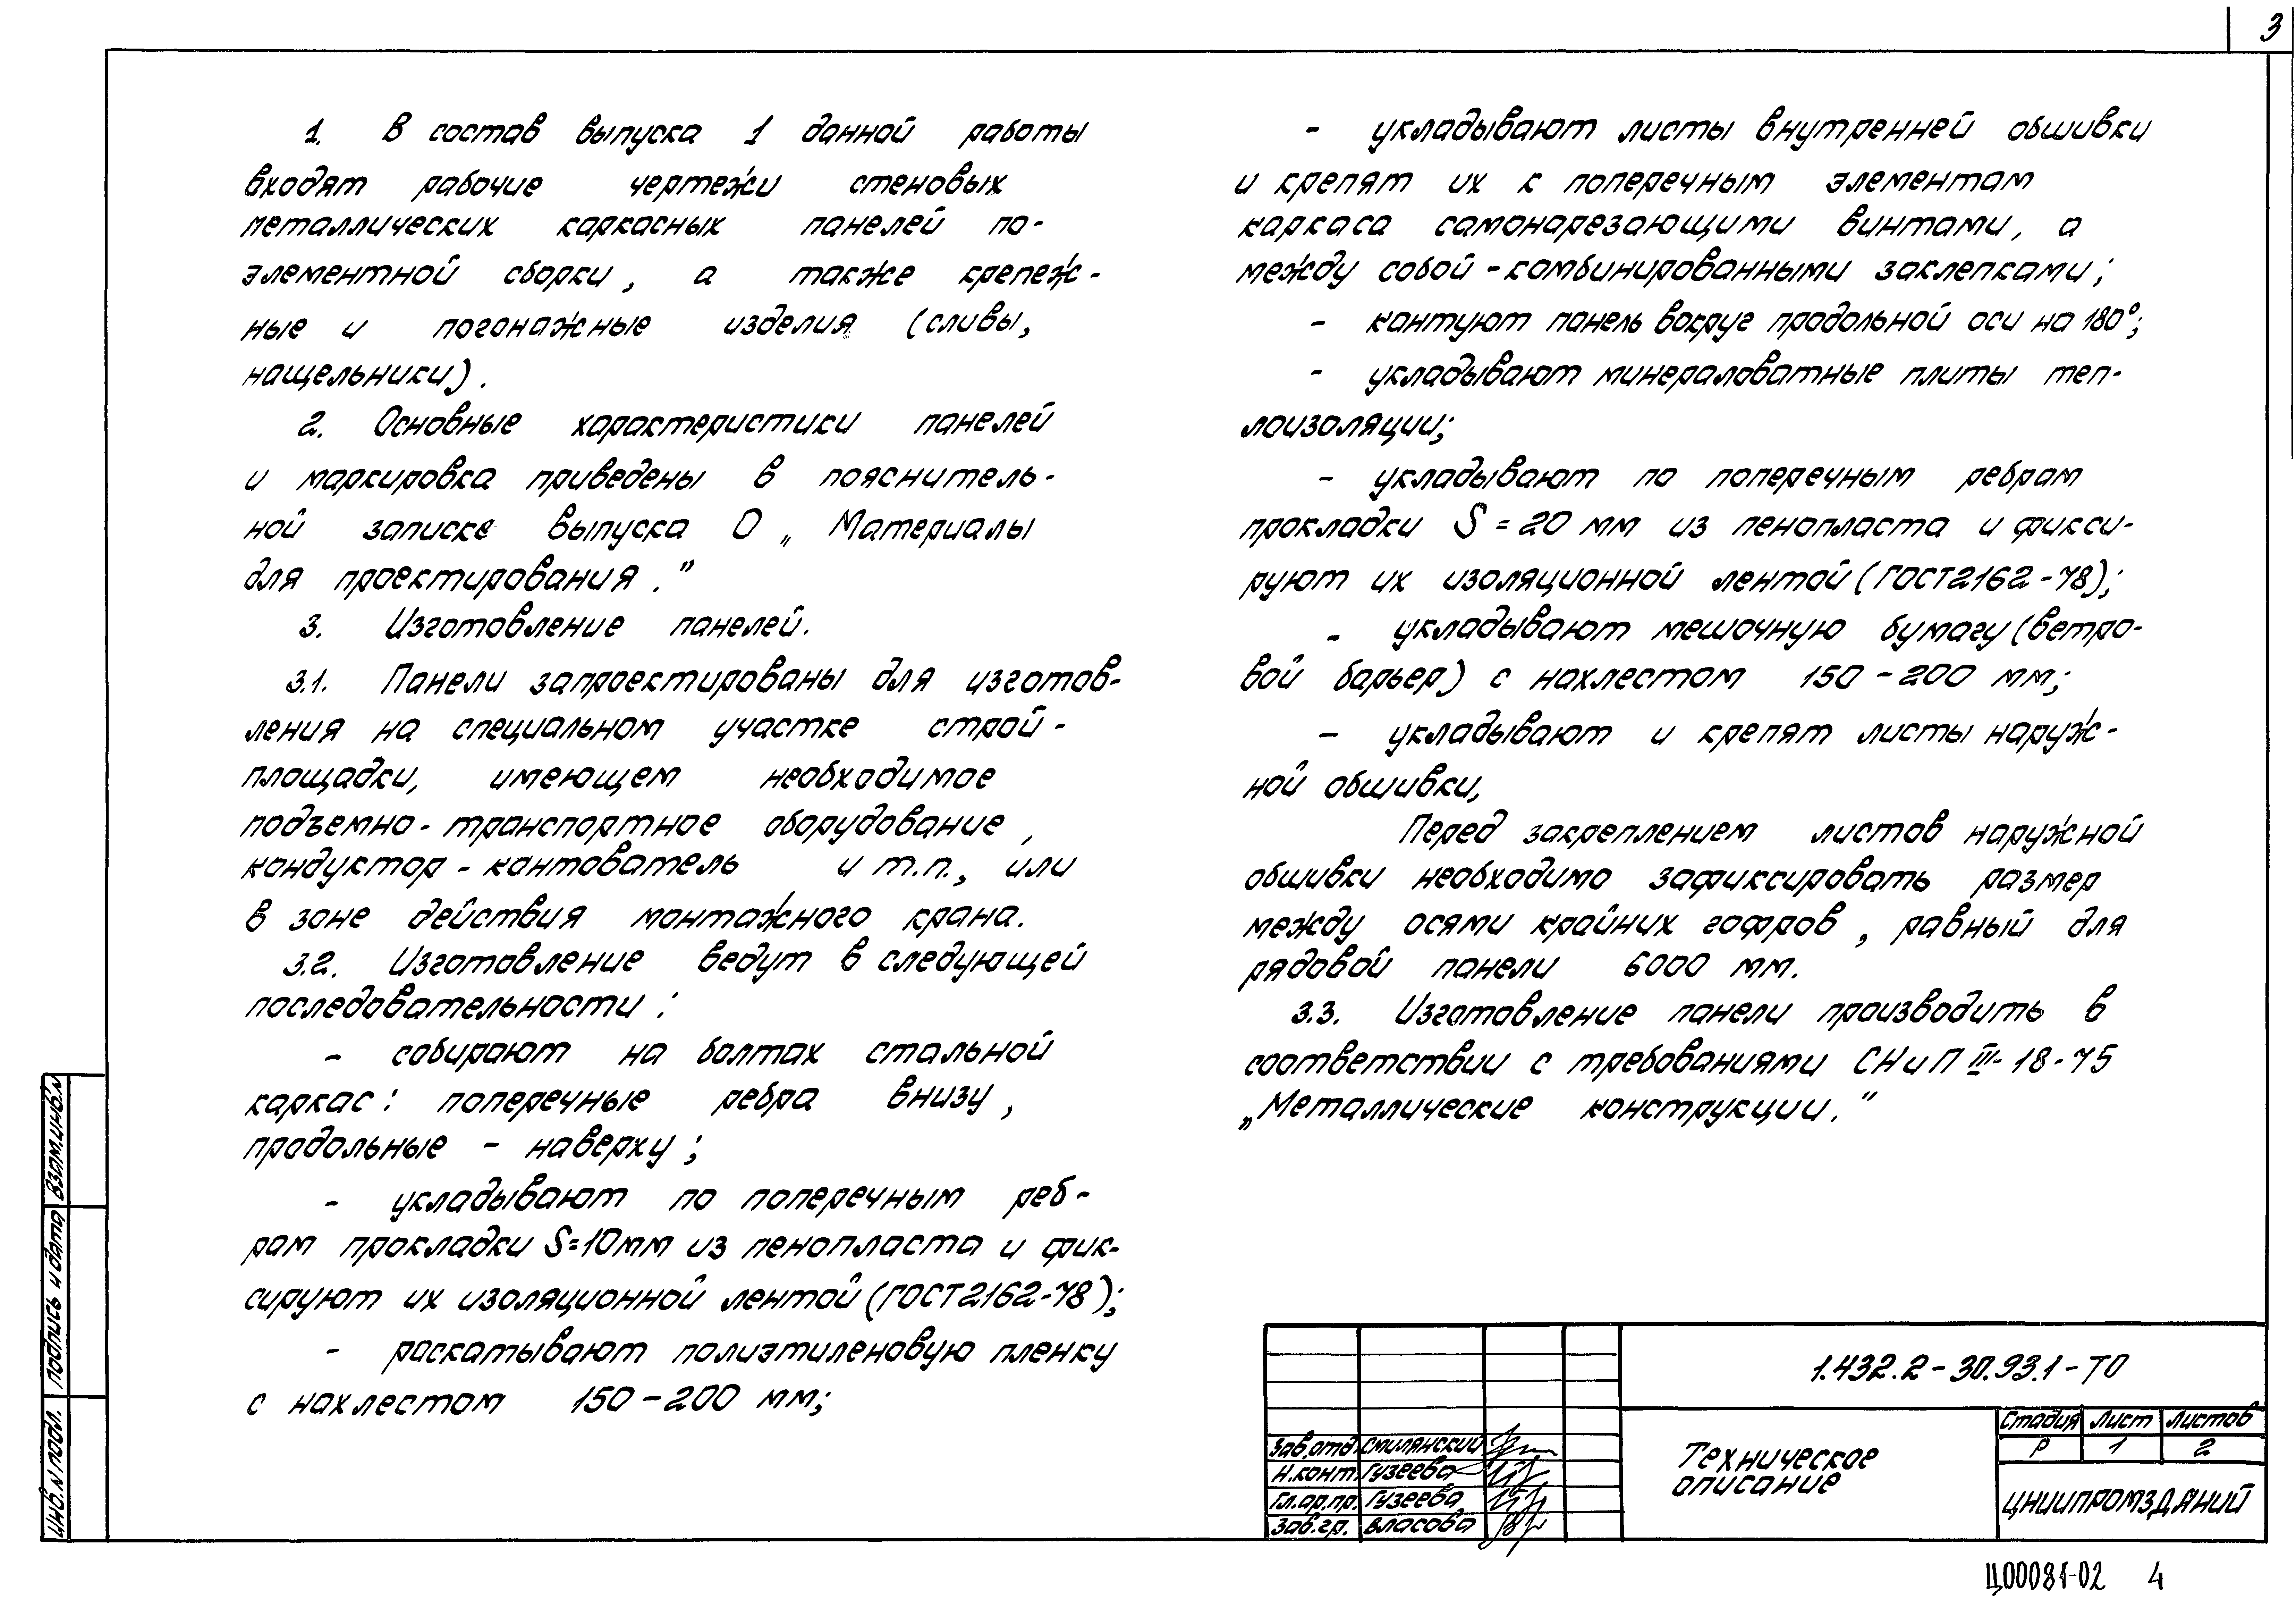 3
1. В состав выпуска 1 данной работы
входят рабочие чертежи стеновых
металлических каркасных панелей по-
элементной сборки, а также крепеж-
ные и погонажные изделия (сливы,
нащельники).
2. Основные характеристики панелей
и маркировка приведены в пояснитель-
ной записке выпуска 0 „Материалы
для проектирования."
3. Изготовление панелей.
3.1. Панели запроектированы для изготов-
ления на специальном участке строй-
площадки, имеющем необходимое
подъемно-транспортное оборудование,
кондуктор-кантователь и т.п., или
в зоне действия монтажного крана.
3.2. Изготовление ведут в следующей
последовательности:
- собирают на болтах стальной
каркас: поперечные ребра внизу,
продольные - наверху;
- укладывают по поперечным реб-
рам прокладки S=10мм из пенопласта и фик-
сируют их изоляционной лентой (ГОСТ 2162-78);
- раскатывают полиэтиленовую пленку
с нахлестом 150-200 мм;
- укладывают листы внутренней обшивки
и крепят их к поперечным элементам
каркаса самонарезающими винтами, а
между собой - комбинированными заклепками;
- кантуют панель вокруг продольной оси на 180°;
- укладывают минераловатные плиты теп-
лоизоляции;
- укладывают по поперечным ребрам
прокладки S=20 мм из пенопласта и фикси-
руют их изоляционной лентой (ГОСТ 2162-78);
- укладывают мешочную бумагу (ветро-
вой барьер) с нахлестом 150-200 мм;
- укладывают и крепят листы наруж-
ной обшивки,
Перед закреплением листов наружной
обшивки необходимо зафиксировать размер
между осями крайних гофров, равный для
рядовой панели 6000 мм.
3.3. Изготовление панели производить в
соответствии с требованиями СНиП III-18-75
„Металлические конструкции."
Взам.инв.N
Подпись и дата
Инв.N подл.
1.432.2-30.93.1-ТО
Зав.отд. Смилянский
Н.конт. Гузеева
Гл.ар.пр. Гузеева
Зав.гр. Власова
Техническое
описание
Стадия Лист Листов
Р 1 2
ЦНИИПРОМЗДАНИЙ
Ц00081-02 4